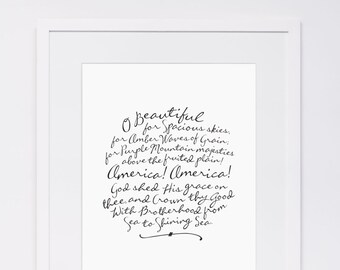 O Beautiful
for Spacious skies,
for Amber Waves of Grain,
for Purple Mountain majesties
above the fruited plain!
America! America!
God shed His grace on
thee and Crown thy Good
With Brotherhood from
Sea to Shining Sea